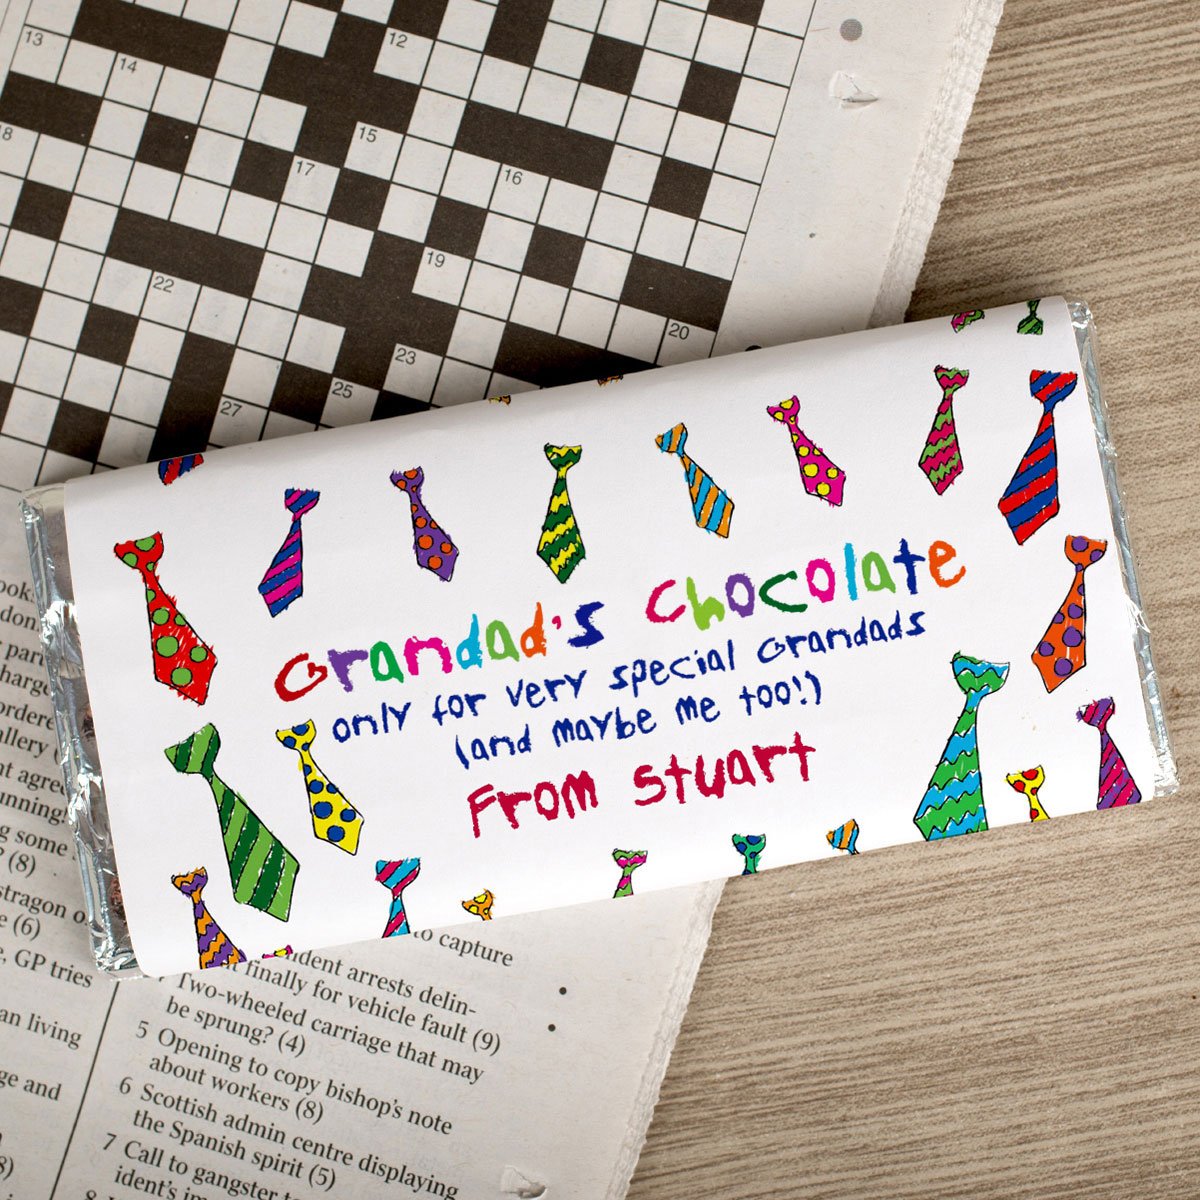 13
12
14
18
15
17
16
19
22
20
23
25
27
Grandad's Chocolate
only for very special Grandads
(and maybe me too!)
From Stuart
ook
don.
part
harge
rdere
allery
t agree
unning!
g some
? (8)
stragon
e (6)
e, GP tries
an living
ge and
8)
to capture
ident arrests delin-
finally for vehicle fault (9)
Two-wheeled carriage that may
be sprung? (4)
5 Opening to copy bishop's note
about workers (8)
6 Scottish admin centre displaying
the Spanish spirit (5)
7 Call to gangster
ident's
8